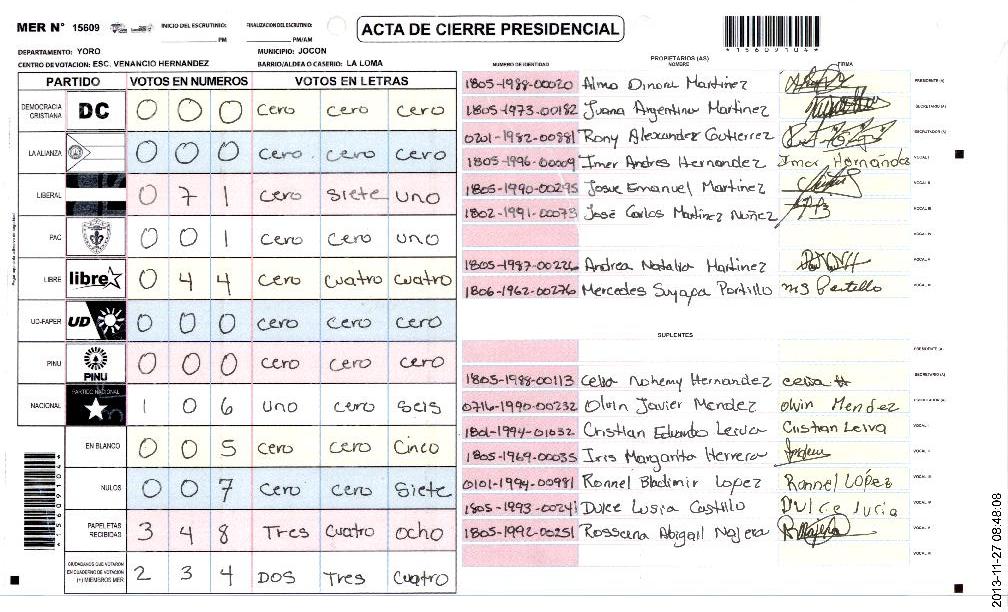 MER N° 15609
INICIO DEL ESCRUTINIO: PM
FINALIZACION DEL ESCRUTINIO: PM/AM
ACTA DE CIERRE PRESIDENCIAL
*15609104*
DEPARTAMENTO: YORO
MUNICIPIO: JOCON
CENTRO DE VOTACION: ESC. VENANCIO HERNANDEZ
BARRIO/ALDEA O CASERIO: LA LOMA
PARTIDO VOTOS EN NUMEROS VOTOS EN LETRAS
DEMOCRACIA CRISTIANA DC 0 0 0 cero cero cero
LA ALIANZA 0 0 0 cero cero cero
LIBERAL 0 7 1 cero siete uno
PAC 0 0 1 cero cero uno
LIBRE libre 0 4 4 cero cuatro cuatro
UD-FAPER UD 0 0 0 cero cero cero
PINU PINU 0 0 0 cero cero cero
NACIONAL PARTIDO NACIONAL 1 0 6 uno cero seis
EN BLANCO 0 0 5 cero cero cinco
NULOS 0 0 7 cero cero siete
PAPELETAS RECIBIDAS 3 4 8 Tres cuatro ocho
CIUDADANOS QUE VOTARON EN CUADERNO DE VOTACION (+) MIEMBROS MER 2 3 4 DOS Tres cuatro
*15609104*
PROPIETARIOS (AS)
NUMERO DE IDENTIDAD NOMBRE FIRMA
1805-1988-00020 Alma Dinora Martinez PRESIDENTE (A)
1805-1973-00182 Juana Argentina Martinez SECRETARIO (A)
0201-1982-00881 Rony Alexander Gutierrez ESCRUTADOR (A)
1805-1996-00009 Imer Andres Hernandez Imer Hernandez VOCAL I
1805-1990-00295 Josue Emanuel Martinez VOCAL II
1802-1991-00073 José Carlos Martinez Nuñez VOCAL III
VOCAL IV
1805-1987-00226 Andrea Natalia Martinez VOCAL V
1806-1962-00276 Mercedes Suyapa Portillo VOCAL VI
SUPLENTES
PRESIDENTE (A)
1805-1988-00113 Celia Nohemy Hernandez celia H SECRETARIO (A)
0716-1990-00232 Olvin Javier Mendez olvin Mendez ESCRUTADOR (A)
1801-1994-01032 Cristian Eduardo Leiva Cristian Leiva VOCAL I
1805-1969-00035 Iris Margarita Herrera VOCAL II
0101-1994-00981 Ronnel Bladimir Lopez Ronnel López VOCAL III
1805-1993-00241 Dulce Lusia Castillo Dulce lucia VOCAL IV
1805-1992-00251 Rossana Abigail Najera R. Najera VOCAL V
VOCAL VI
2013-11-27 08:48:08